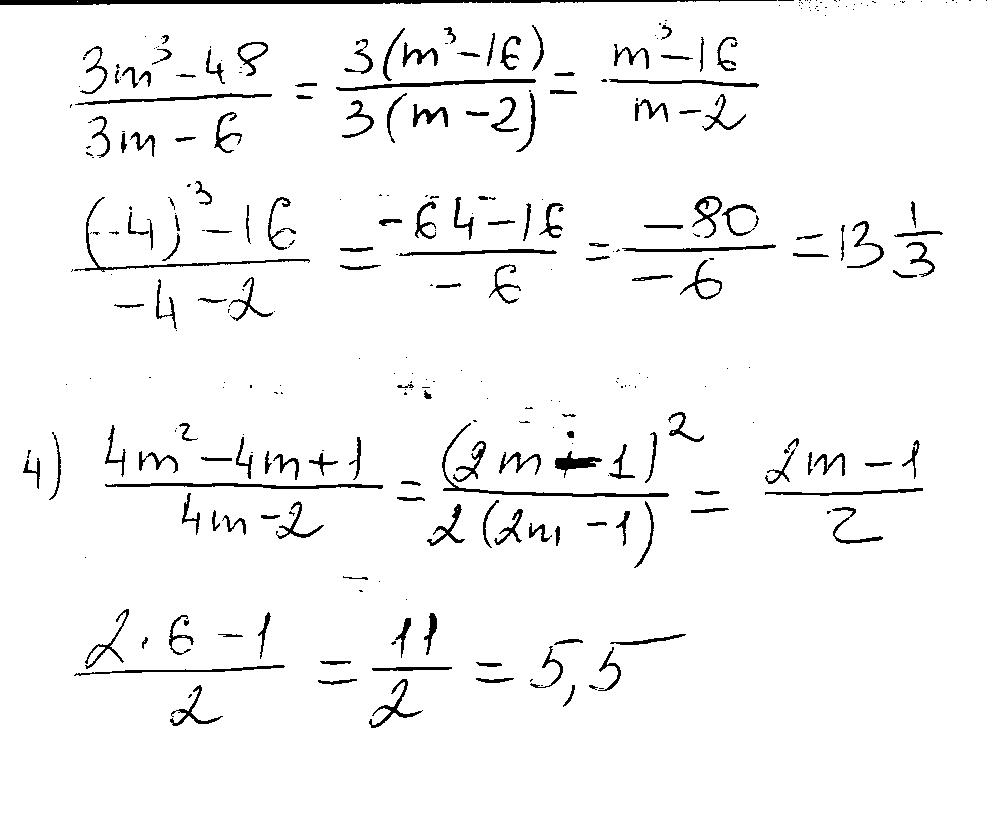 (3m³-48)/(3m-6) = (3(m³-16))/(3(m-2)) = (m³-16)/(m-2)
((-4)³-16)/(-4-2) = (-64-16)/(-6) = (-80)/(-6) = 13 1/3
4) (4m²-4m+1)/(4m-2) = ((2m-1)²)/(2(2m-1)) = (2m-1)/2
(2·6-1)/2 = 11/2 = 5,5